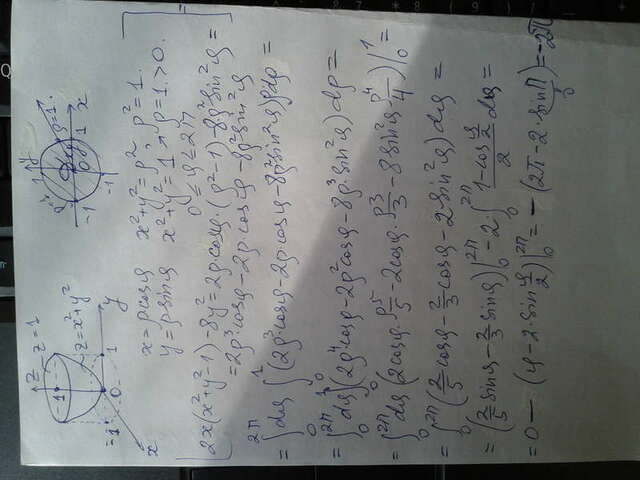 z
z=1
1
z=x²+y²
-1
0
1
y
x
y
1
ρ=1
-1
0
1
x
-1
x=ρcosφ x²+y²=ρ²
y=ρsinφ x²+y²=1 → ρ²=1. ρ=1>0.
0≤φ≤2π
2x(x²+y²-1)-8y²=2ρcosφ·(ρ²-1)-8ρ²sin²φ=
=2ρ³cosφ-2ρcosφ-8ρ²sin²φ
=∫₀^2π dφ ∫₀^1 (2ρ³cosφ-2ρcosφ-8ρ²sin²φ)ρdρ=
=∫₀^2π dφ ∫₀^1 (2ρ⁴cosφ-2ρ²cosφ-8ρ³sin²φ)dρ=
=∫₀^2π dφ(2cosφ·ρ⁵/5-2cosφ·ρ³/3-8sin²φ·ρ⁴/4)|₀^1=
=∫₀^2π (2/5 cosφ-2/3 cosφ-2sin²φ)dφ=
=(2/5 sinφ-2/3 sinφ)|₀^2π-2·∫₀^2π (1-cos φ/2)/2 dφ=
=0-(φ-2·sin φ/2)|₀^2π=-(2π-2·sinπ)=-2π
0